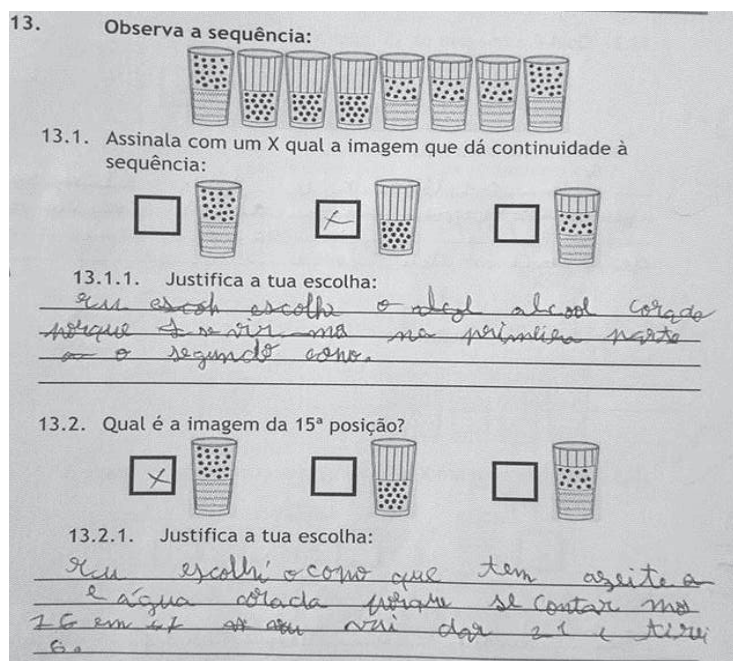 13. Observa a sequência:
13.1. Assinala com um X qual a imagem que dá continuidade à
sequência:
X
13.1.1. Justifica a tua escolha:
eu escoh escolhi o alcol alcool corado
porque se vir ma na primeira parte
o segundo copo.
13.2. Qual é a imagem da 15ª posição?
X
13.2.1. Justifica a tua escolha:
Eu escolhi o copo que tem azeite a
e água corada porque se contar mos
16 em vai dar 21 e tirei
6.